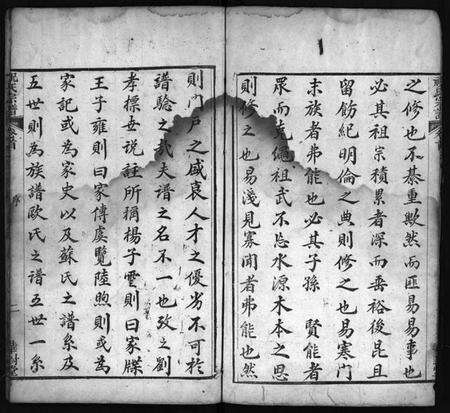 之修也不綦重歟然而匪易易事也
必其祖宗積累者深而垂裕後昆且
留飭紀明倫之典則修之也易寒門
末族者弗能也必其子孫 賢能者
眾而克繩祖武不忘水源木本之思
則修之也易淺見寡聞者弗能也然
則門戶之盛衰人才之優劣不可於
譜驗之哉夫譜之名不一也攷之劉
孝標世說註所稱揚子雲則曰家牒
王子雍則曰家傳虞覽陸煦則或為
家記或為家史以及蘇氏之譜系及
五世則為族譜歐氏之譜五世一系
序
二